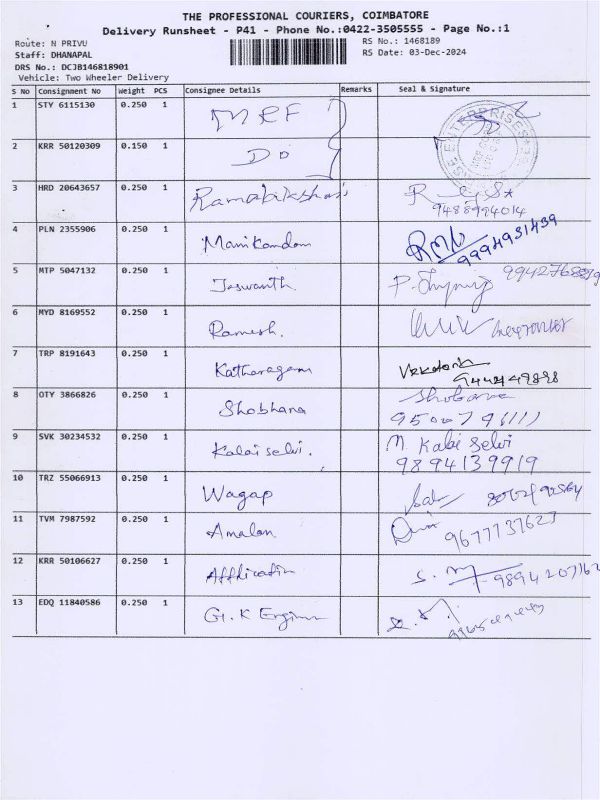 THE PROFESSIONAL COURIERS, COIMBATORE
Delivery Runsheet - P41 - Phone No.:0422-3505555 - Page No.:1
Route: N PRIVU
RS No.: 1468189
Staff: DHANAPAL
RS Date: 03-Dec-2024
DRS No.: DCJB146818901
Vehicle: Two Wheeler Delivery
S No Consignment No Weight PCS Consignee Details Remarks Seal & Signature
1 STY 6115130 0.250 1 MRF ENTERPRISES
2 KRR 50120309 0.150 1 Do
3 HRD 20643657 0.250 1 9488994014
4 PLN 2355906 0.250 1 Manikandan 9994931439
5 MTP 5047132 0.250 1 Jaswanth.
6 MYD 8169552 0.250 1 Ramesh.
7 TRP 8191643 0.250 1 Katharagam
8 OTY 3866826 0.250 1 Shobhana Shobana
9 SVK 30234532 0.250 1 Kalai selvi. M. Kalai Selvi
9894139919
10 TRZ 55066913 0.250 1 Wagap
11 TVM 7987592 0.250 1 Amalan 9677737627
12 KRR 50106627 0.250 1 S. M
13 EDQ 11840586 0.250 1 G. K